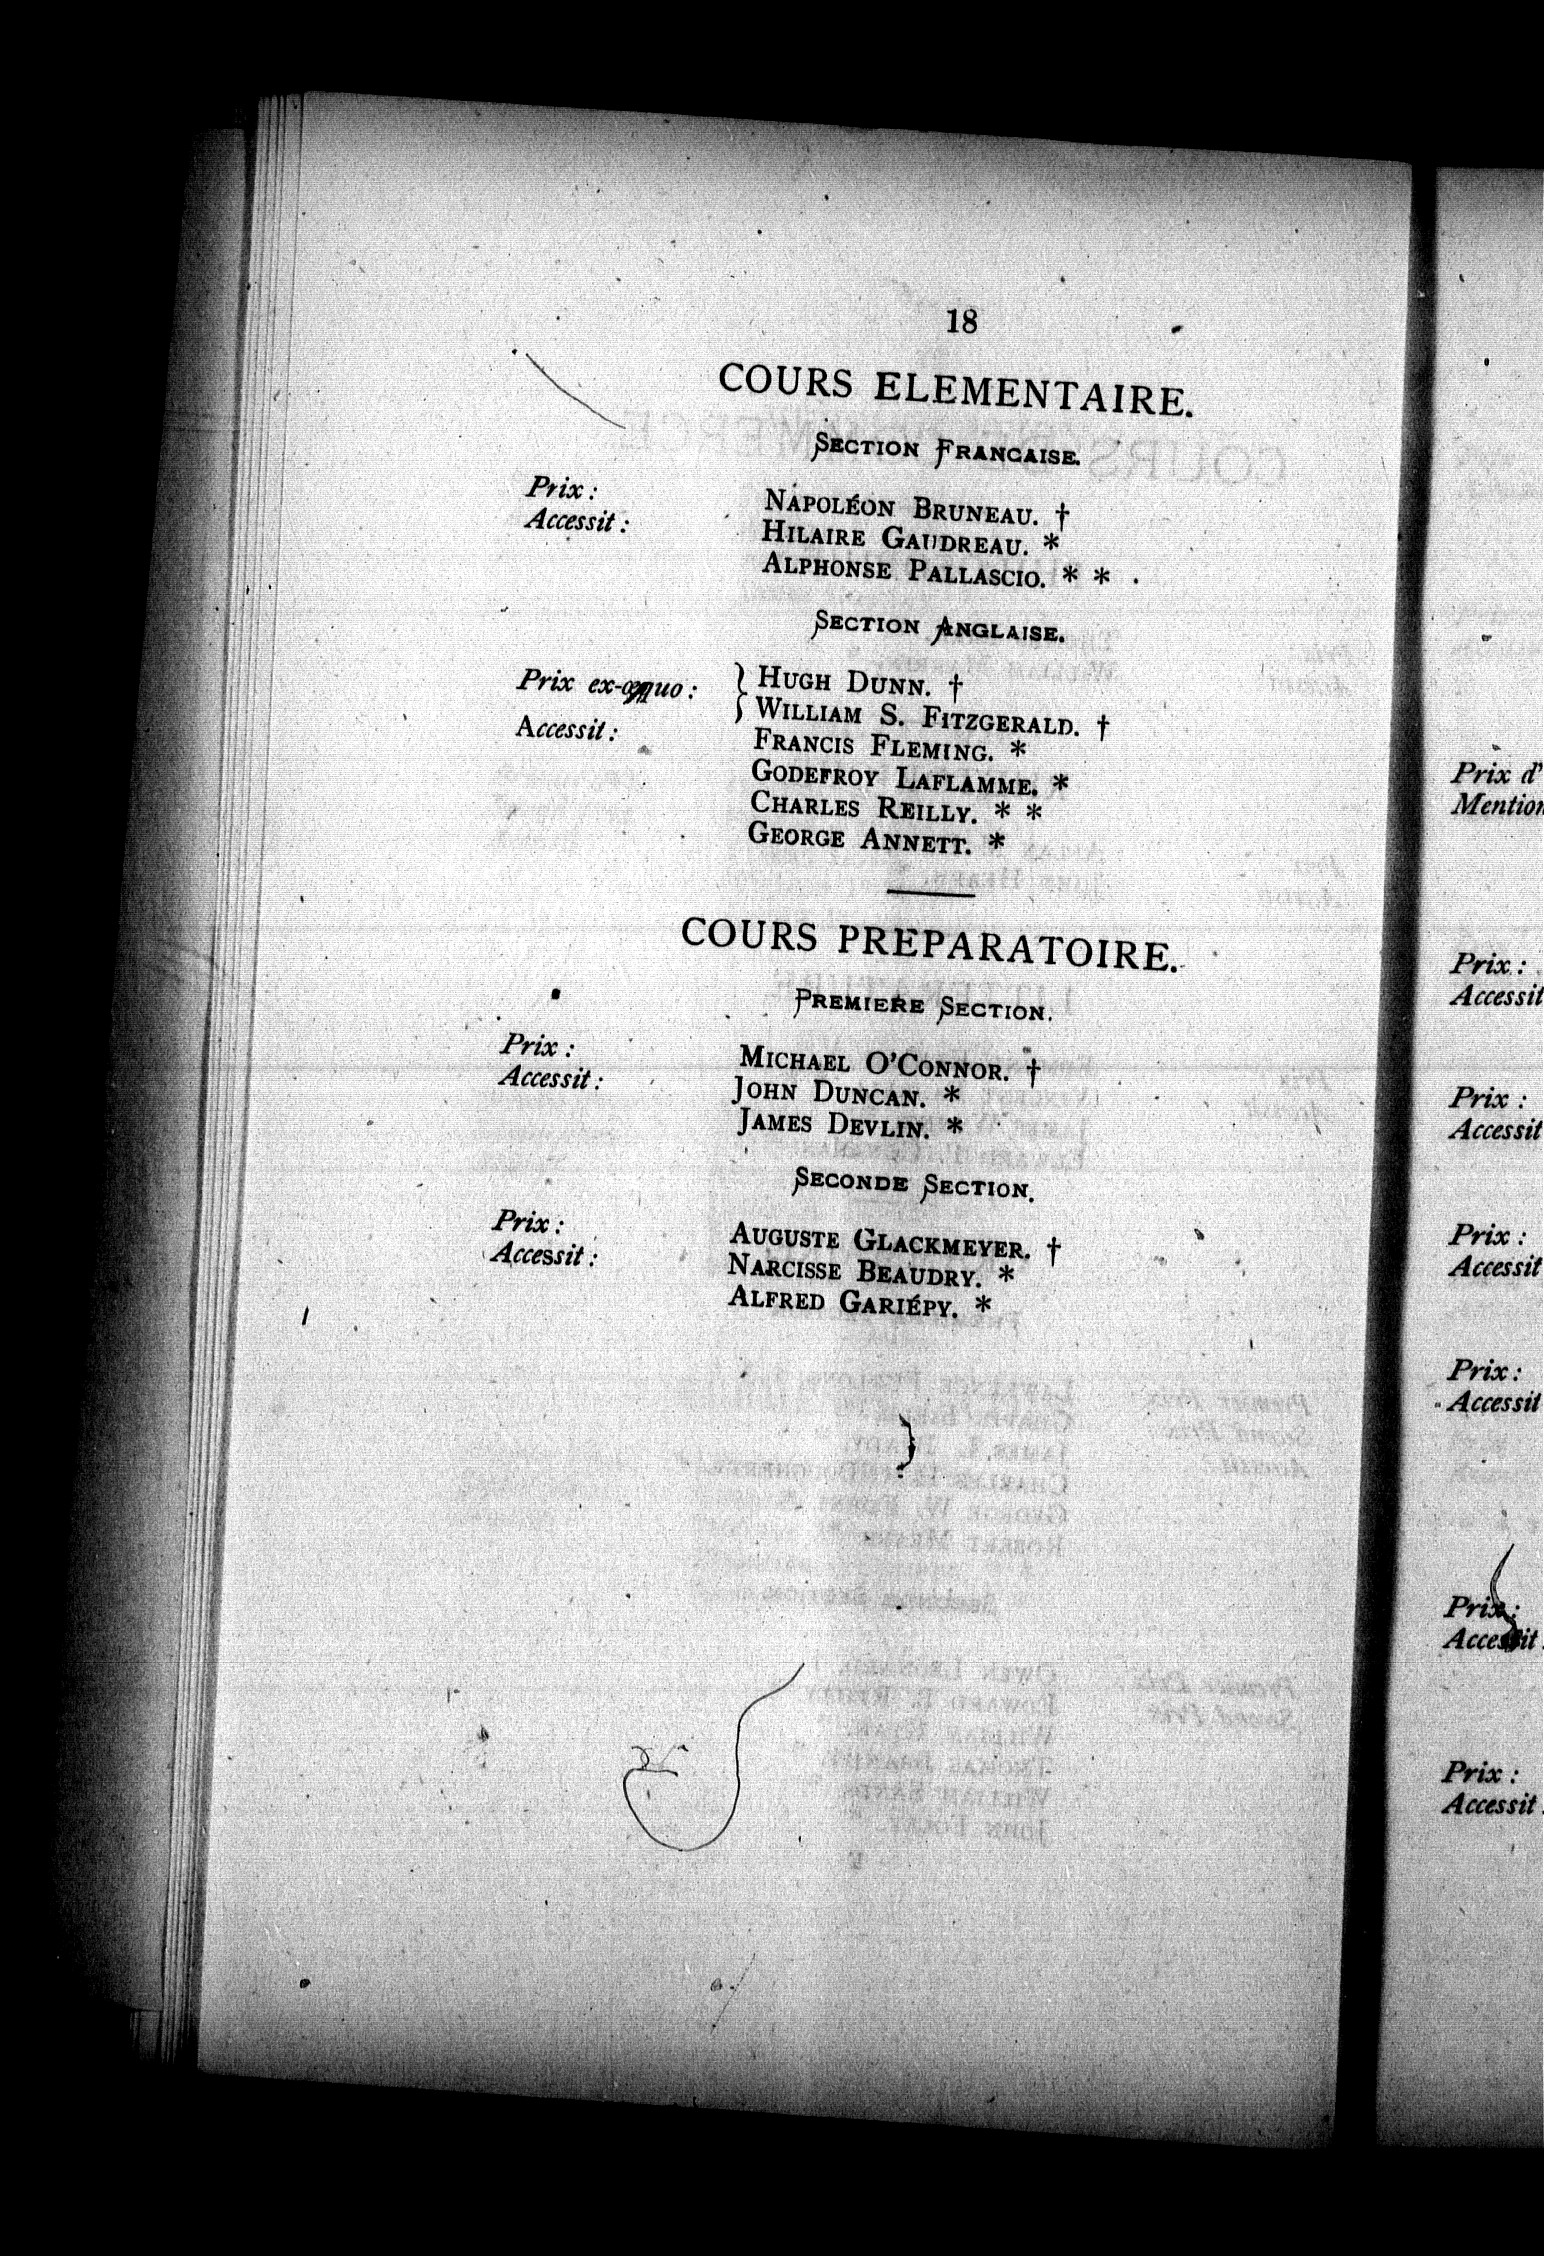 18
COURS ELEMENTAIRE.
SECTION FRANCAISE.
Prix : NAPOLÉON BRUNEAU. †
Accessit : HILAIRE GAUDREAU. *
ALPHONSE PALLASCIO. * *
SECTION ANGLAISE.
Prix ex-æquo : } HUGH DUNN. †
WILLIAM S. FITZGERALD. †
Accessit : FRANCIS FLEMING. *
GODEFROY LAFLAMME. *
CHARLES REILLY. * *
GEORGE ANNETT. *
COURS PREPARATOIRE.
PREMIERE SECTION.
Prix : MICHAEL O'CONNOR. †
Accessit : JOHN DUNCAN. *
JAMES DEVLIN. *
SECONDE SECTION.
Prix : AUGUSTE GLACKMEYER. †
Accessit : NARCISSE BEAUDRY. *
ALFRED GARIÉPY. *
Prix d'
Mention
Prix :
Accessit
Prix :
Accessit
Prix :
Accessit
Prix :
Accessit
Prix :
Accessit
Prix :
Accessit